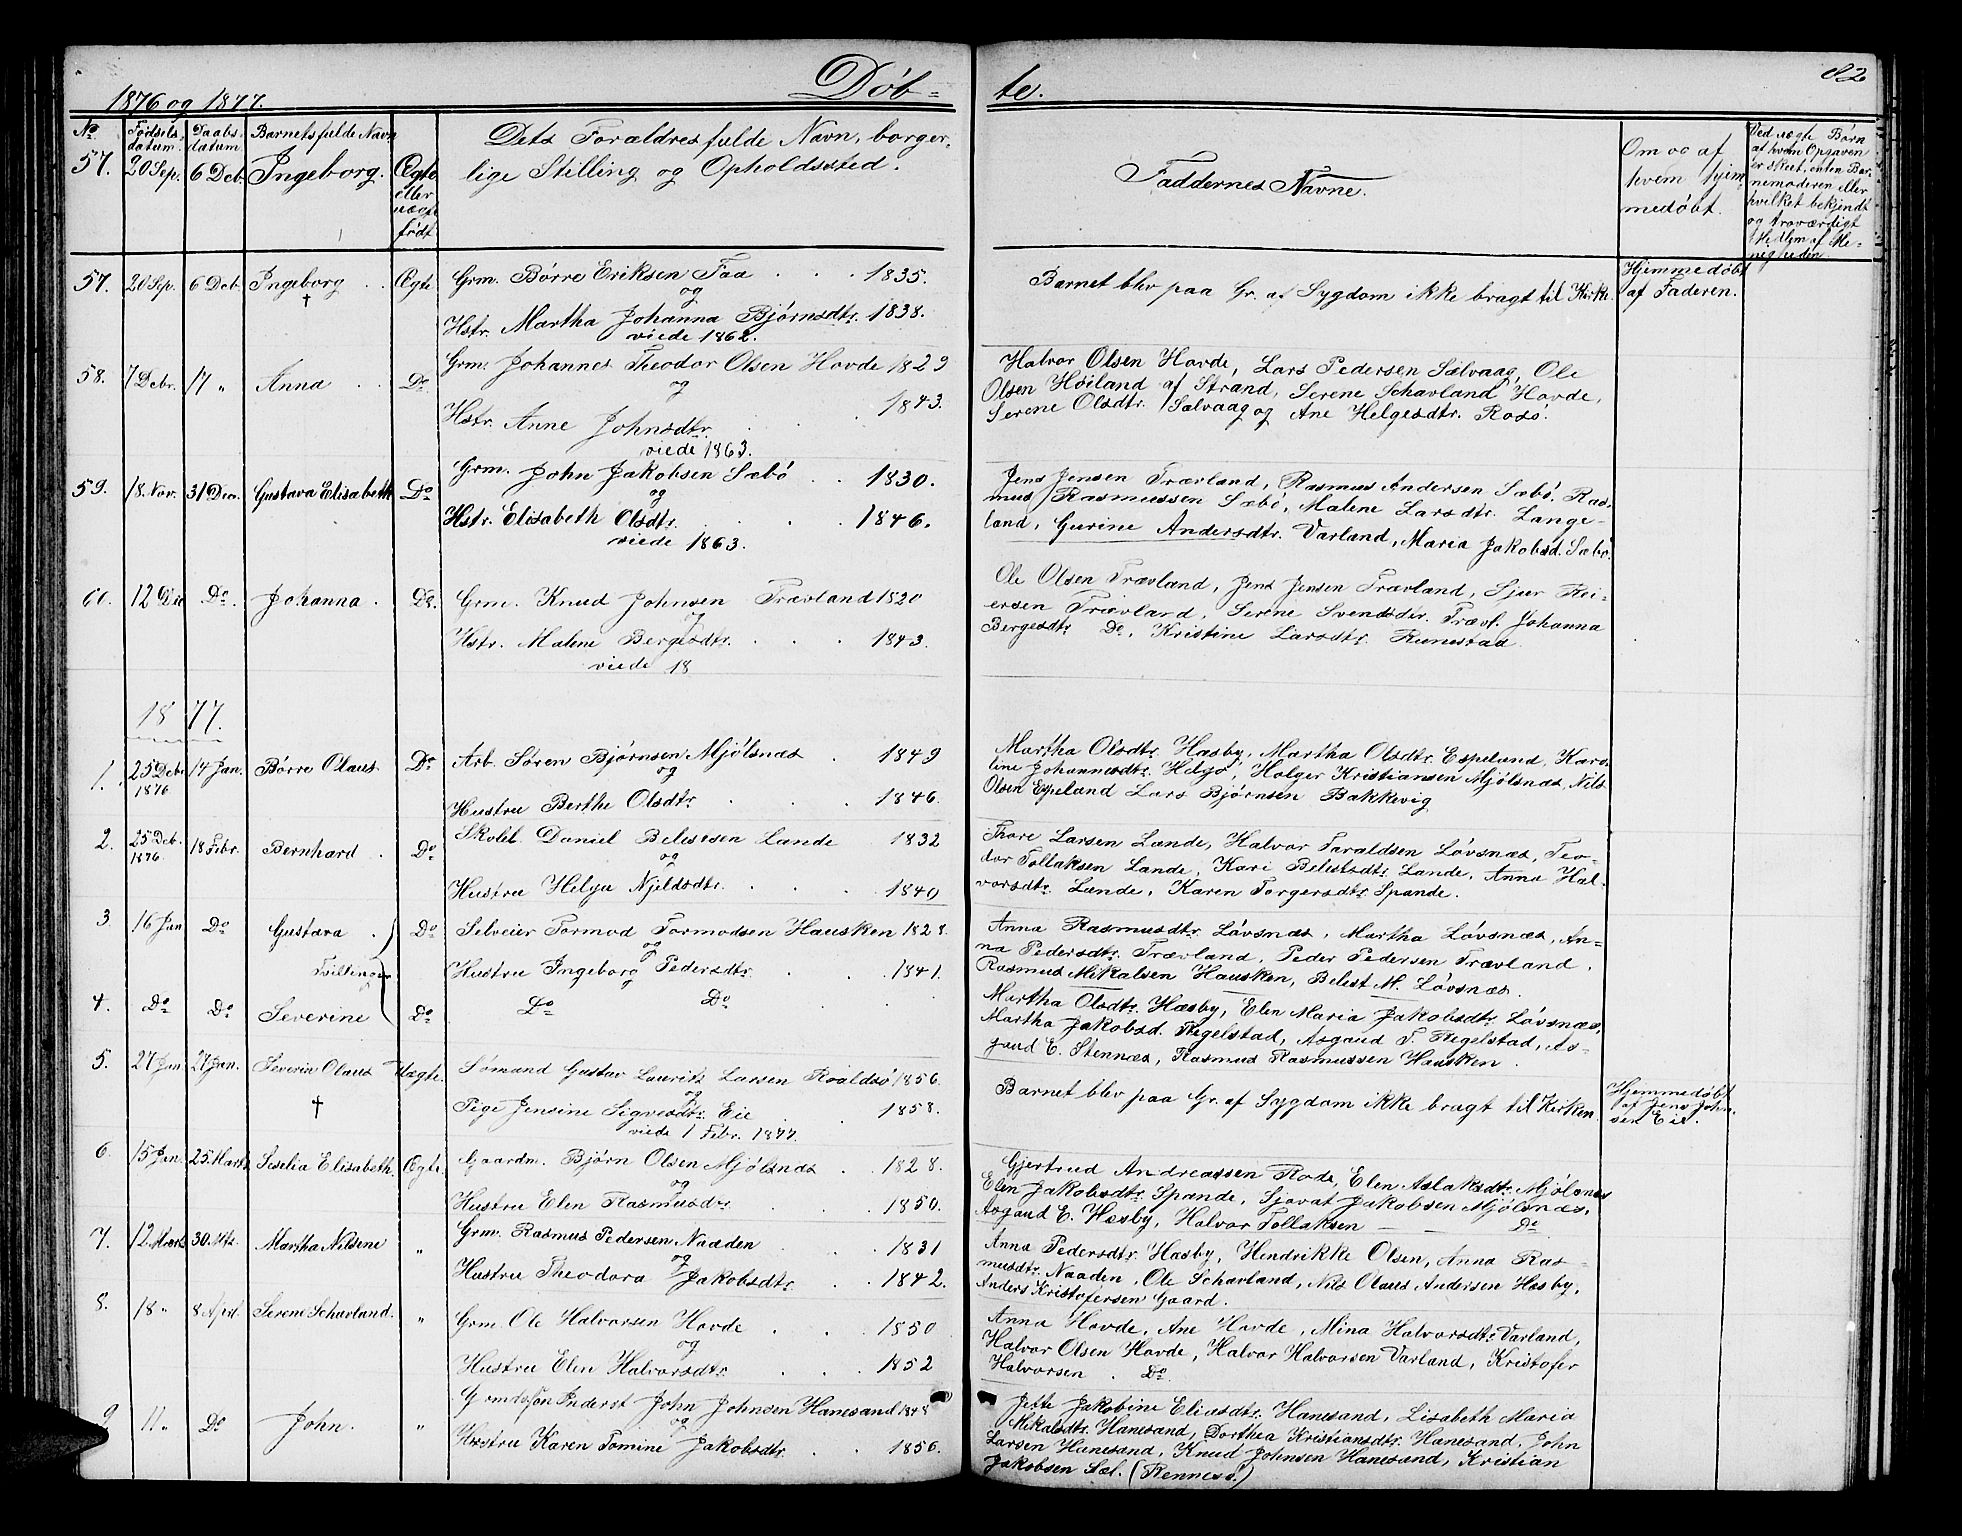 82
1876 og 1877.
Døb-
te.
No
Fødsels-
datum.
Daabs-
datum.
Barnets fulde Navn
Ægte
eller
uægte
født
Dets Forældres fulde Navn, borger-
lige Stilling og Opholdssted.
Faddernes Navne.
Om og af
hvem hjem-
medøbt.
Ved uægte Børn
at hvem Opgaven
er skeet, enten Bar-
nemoderen eller
hvilket bekjendt
og troværdigt
Medlem af Me-
nigheden.
57. 20 Sep. 6 Deb. Ingeborg.
57. 20 Sep. 6 Deb. Ingeborg . . Ægte Grm. Børre Eriksen Faa . . . 1835.
†
og
Hstr. Martha Johanna Bjørnsdtr. 1838.
viede 1862.
Barnet blev paa Gr. af Sygdom ikke bragt til Kirke.
Hjemmedøbt
af Faderen.
58. 7 Debr. 17 „ Anna . . Do Grm. Johannes Theodor Olsen Hovde 1829
og
Hstr. Anne Johnsdtr. . . . 1843.
viede 1863.
Halvor Olsen Hovde, Lars Pedersen Sælvaag, Ole
Olsen Høiland af Strand, Serene Schavland Hovde,
Serene Olsdtr. Sælvaag og Ane Helgesdtr. Rosø.
59. 18. Nov. 31 Dec. Gustava Elisabeth Do Grm. John Jakobsen Sæbø . . 1830.
og
Hstr. Elisabeth Olsdtr. . . . 1846.
viede 1863.
Jens Jensen Trævland, Rasmus Andersen Sæbø, Ras-
mus Rasmussen Sæbø, Malene Larsdtr. Lange-
land, Gurine Andersdtr. Varland, Maria Jakobsd. Sæbø.
60. 12 Dec Do. Johanna . Do. Grm. Knud Johnsen Trævland 1820
og
Hstr. Malene Bergesdtr. . . 1843.
viede 18
Ole Olsen Trævland, Jens Jensen Trævland, Sjur Rei-
ersen Trævland, Serene Svendsdtr. Trævl. Johanna
Bergesdtr Do, Kristine Larsdtr. Runestad.
1877.
1. 25 Deb. 14 Jan. Børre Olaus Do Arb. Søren Bjørnsen Mjølsnæs . 1849
1876
og
Hustru Berthe Olsdtr . . . 1846.
Martha Olsdtr. Hæsby, Martha Olsdtr. Espeland, Karo-
line Johannesdtr. Helgø, Holger Kristiansen Mjølsnæs, Nils
Olsen Espeland Lars Bjørnsen Bakkevig
2. 25 Deb. 18 Febr. Bernhard . Do Skolel. Daniel Belestsen Lande 1832
1876.
og
Hustru Helga Njeldsdtr. . . . 1840
Thore Larsen Lande, Halvor Taraldsen Løvsnæs, Teo-
dor Tollaksen Lande, Kari Belestsdtr. Lande, Anna Hal-
vorsdtr. Lande, Karen Torgersdtr. Spande.
3 16 Jan Do Gustava . Do Selveier Tormod Tormodsen Hausken 1828.
Tvillinger
og
Hustru Ingeborg Pedersdtr. . . 1841.
Anna Rasmusdtr. Løvsnæs, Martha Løvsnæs, An-
na Pedersdtr. Trævland, Peder Pedersen Trævland.
Rasmus Mikalsen Hausken, Belest M. Løvsnæs.
4. Do Do Severine Do Do Do
Martha Olsdtr. Hæsby, Elen Maria Jakobsdtr. Løvsnæs,
Martha Jakobsd. Regelstad, Asgaud T. Regelstad, As-
gaud E. Stennæs, Rasmus Rasmussen Hausken.
5. 27 Jan 27 Jan. Severin Olaus Uægte. Sømand Gustav Laurits Larsen Roaldsø 1856.
†
og
Pige Jensine Sigvesdtr. Eie . . 1858.
viede 1 Febr. 1877.
Barnet blev paa Gr. af Sygdom ikke bragt til Kirken.
Hjemmedøbt
af Jens John-
sen Eie.
6. 15 Jan. 25. Marts Seselia Elisabeth. Ægte. Gaardm. Bjørn Olsen Mjølsnæs . 1828.
og
Hustru Elen Rasmusdtr. . . 1850.
Gjertrud Andreassen Rode, Elen Aslaksdtr. Mjølsnæs
Elen Jakobsdtr. Spande, Sjovat Jakobsen Mjølsnæs,
Asgaud E. Hæsby, Halvor Tollaksen — — Do
7. 12. Marts 30. Mts. Martha Nilsine „ Grm. Rasmus Pedersen Naaden . 1831
og
Hustru Theodora Jakobsdtr. . . 1842.
Anna Pedersdtr. Hæsby, Hendrikke Olsen, Anna Ras-
musdtr. Naaden, Ole Schavland, Nils Olaus Andersen Hæsby,
Anders Kristofersen Gaard.
8. 18 „ 8 April. Serene Schavland. „ Grm. Ole Halvorsen Hovde . . . 1850
og
Hustru Elen Halvorsdtr. . . . 1852
Anna Hovde, Ane Hovde, Mina Halvorsdtr. Varland,
Halvor Olsen Hovde, Halvor Halvorsen Varland, Kristofer
Halvorsen . Do.
9 11 „ Do John. „ Grmdssøn Inderst John Johnsen Hanesand 1848
og
Hustru Karen Tomine Jakobsdtr. . . 1856.
Jette Jakobine Eliasdtr. Hanesand, Lisabeth Maria
Mikalsdtr. Hanesand, Dorthea Kristiansdtr. Hanesand, John
Larsen Hanesand, Knud Johnsen Hanesand, Kristian
Jakobsen Sæl. (Rennesø.)